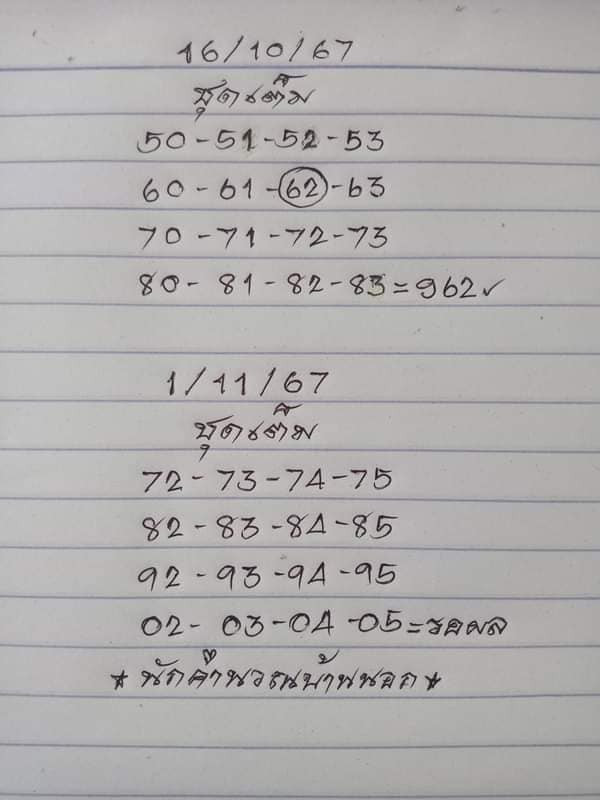 16/10/67
ชุดเต็ม
50-51-52-53
60-61-62-63
70-71-72-73
80-81-82-83=962✓
1/11/67
ชุดเต็ม
72-73-74-75
82-83-84-85
92-93-94-95
02-03-04-05=รอผล
★นักคำนวณบ้านนอก★